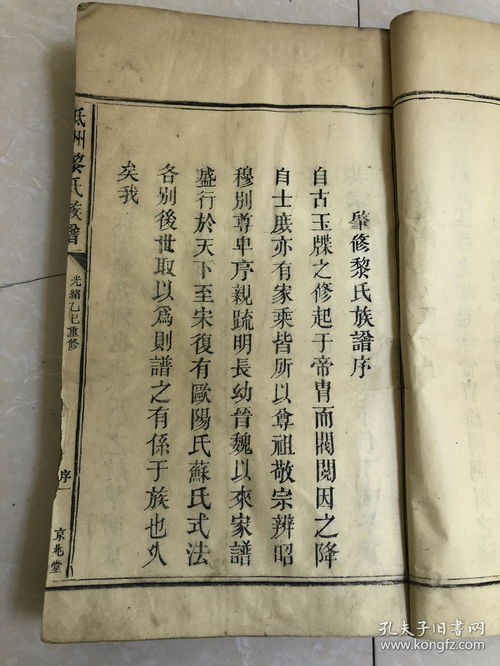 肇修黎氏族譜序
自古玉牒之修起于帝冑而閥閱因之降
自士庶亦有家乘皆所以尊祖敬宗辨昭
穆別尊卑序親疏明長幼晉魏以來家譜
盛行於天下至宋復有歐陽氏蘇氏式法
各別後世取以爲則譜之有係于族也久
矣我
州黎氏族譜
光緒乙巳重修
序
京兆堂
孔夫子旧书网
www.kongfz.com